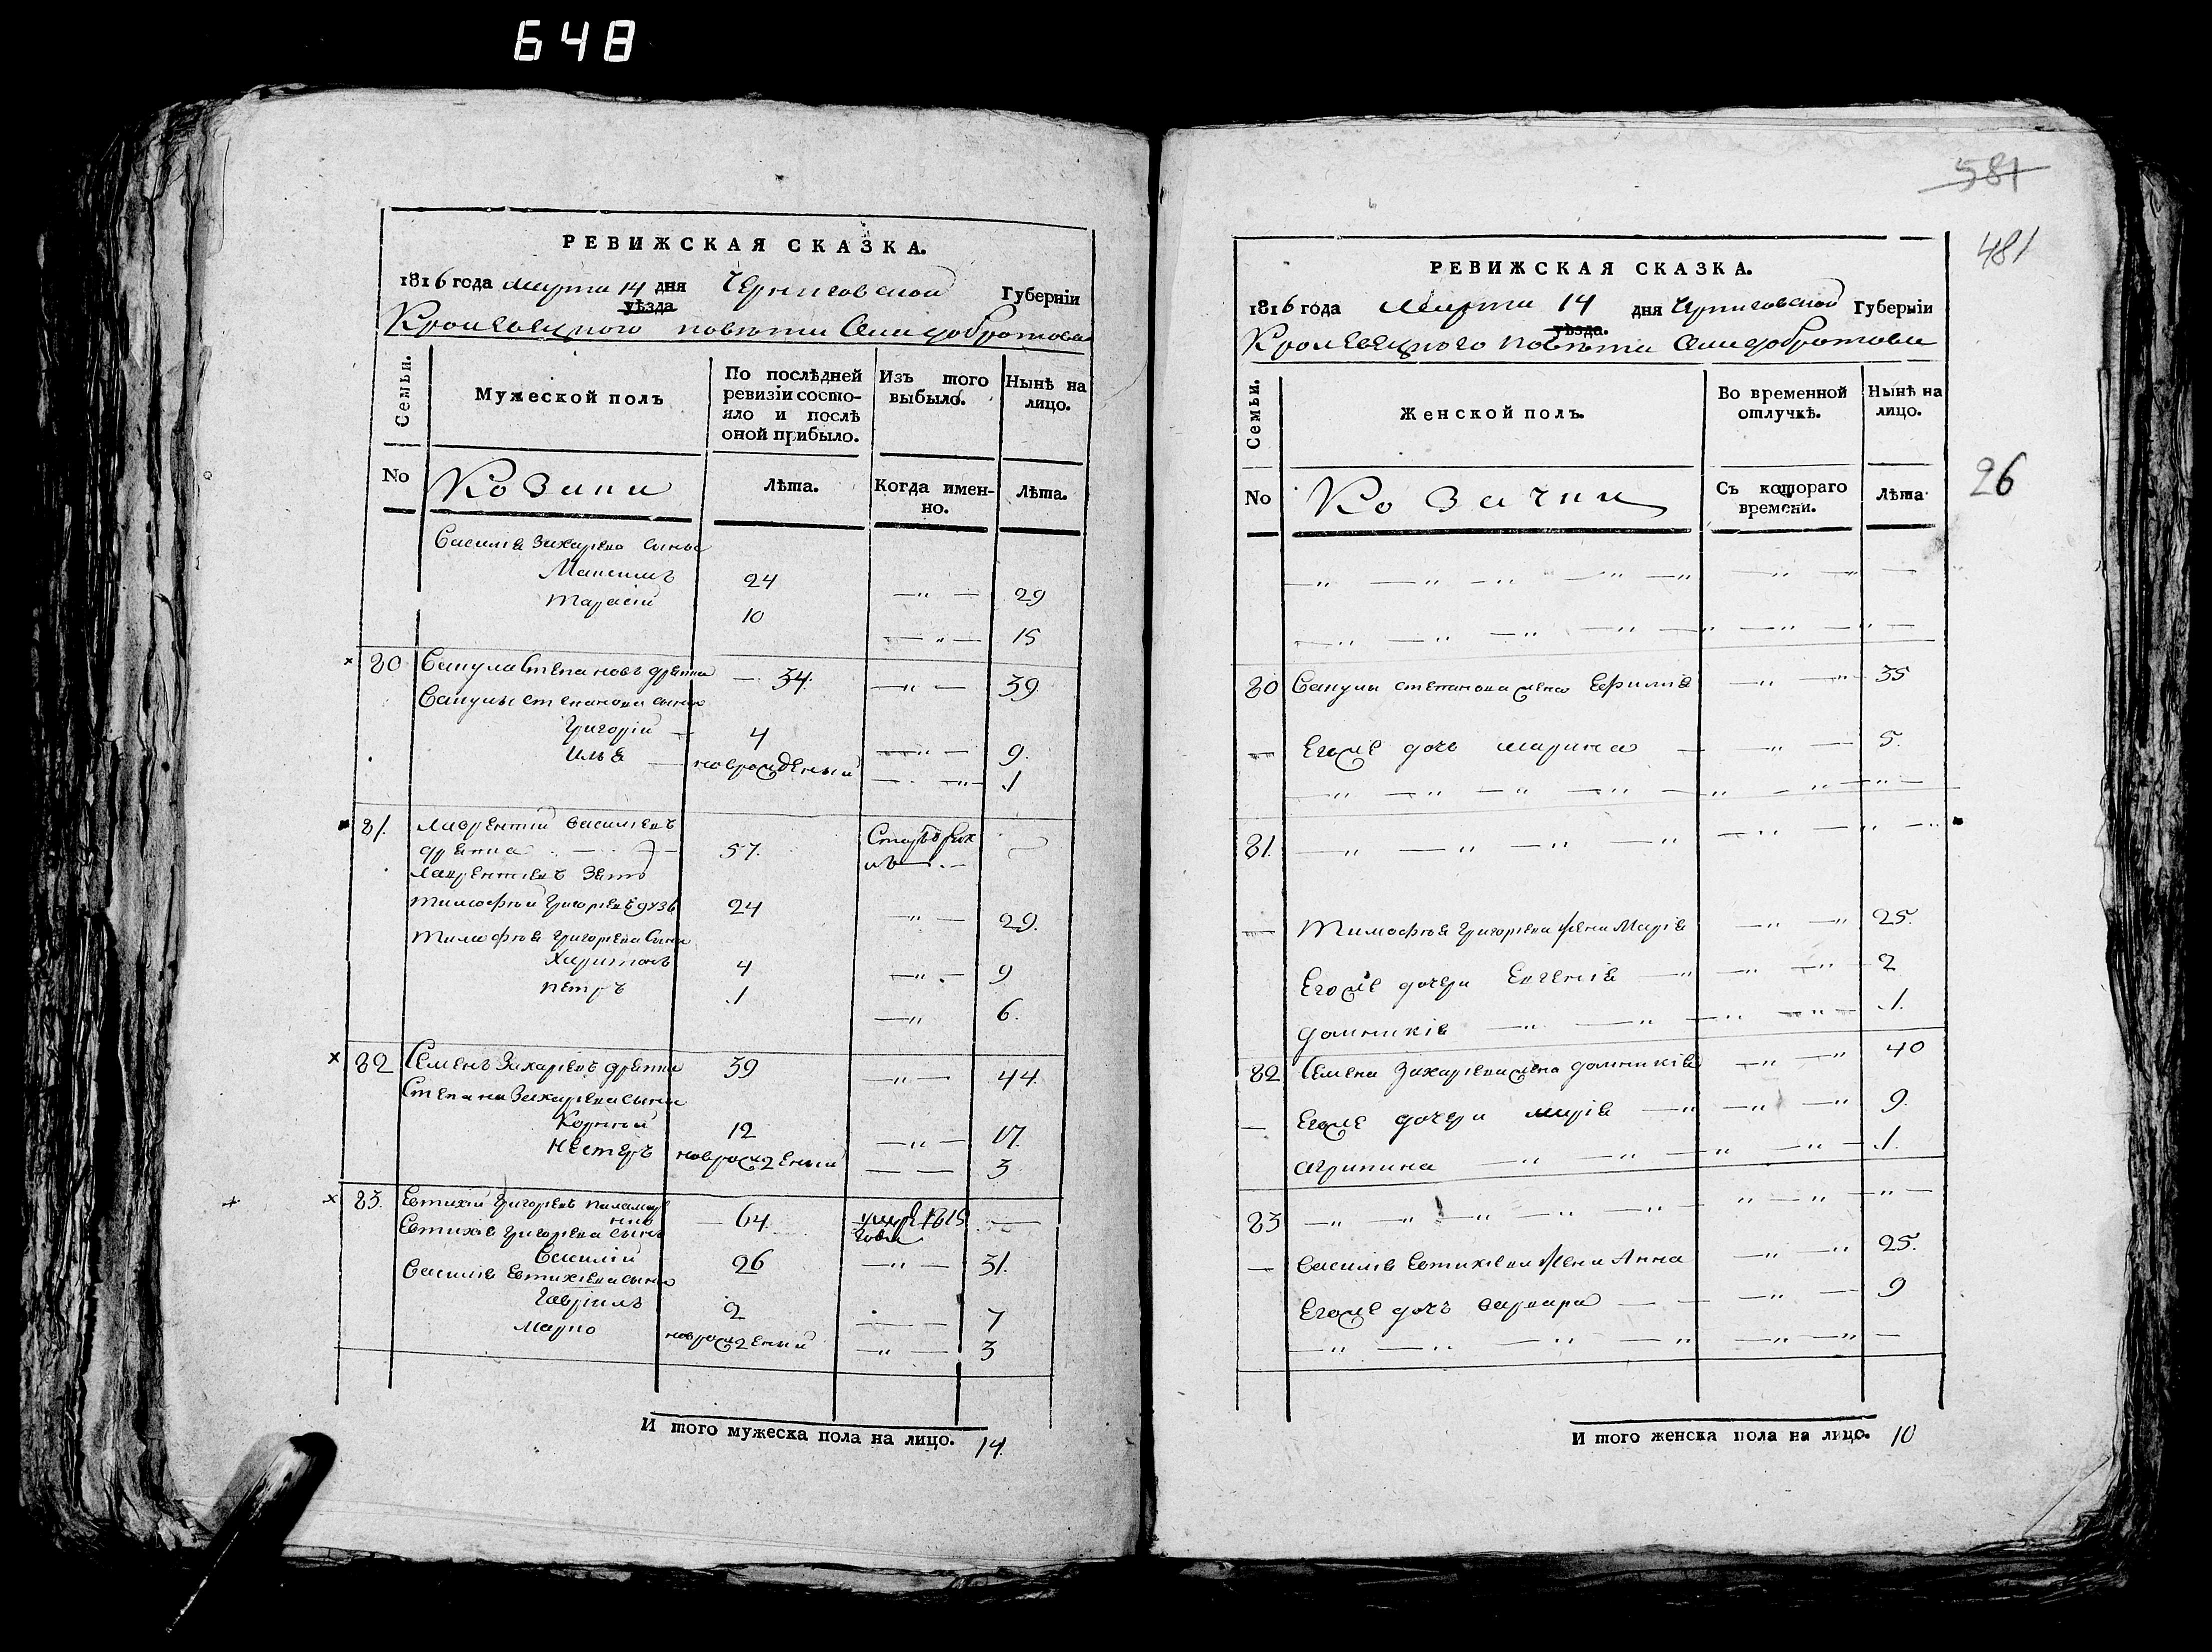 648
РЕВИЖСКАЯ СКАЗКА.
1816 года марта 14 дня Черниговской Губерніи
уѣзда
Кролевецкого повѣта Села добротова
Семьи.
Мужеской полъ
По послѣдней ревизіи состо-
яло и послѣ
оной прибыло.
Изъ того
выбыло.
Нынѣ на
лицо.
No
Козаки
Лѣта.
Когда имен-
но.
Лѣта.
Василія Захарѣва сынья
Максимъ 24 29
Тарасій 10 15
80 Вакула Степановъ 34. 39
Вакулы степанова сыны
Григорій 4 9.
Илья новрожденый 1
81. Лаврентій Василіевъ
57.
Лаврентіевъ Зять
Тимофѣй Григоріевъ 24 29.
Тимофѣя Григоріева Сыны
Харитонъ 4 9
Петръ 1 6.
82 Семенъ Захаріевъ 39 44.
Степана Захаріева сыны
Корнѣй 12 17.
Нестеръ новрожденый 3
83. Евтихій Григоріевъ 64. 1815
Евтихія Григоріева сынъ
Василій 26 31.
Василія Евтихіева сыны
Гавріилъ 2 7
Марко новрожденый 3
И того мужеска пола на лицо. 14.
581
481
26
РЕВИЖСКАЯ СКАЗКА.
1816 года Марта 14 дня Черниговской Губерніи
уѣзда.
Кролевецкого повѣта Села добротова
Семьи.
Женской полъ.
Во временной
отлучкѣ.
Нынѣ на
лицо.
No
Козачки
Съ котораго
времени.
Лѣта
80 Вакулы степанова жена Ефимія 35
Его же дочь марина 5.
81.
Тимофѣя Григоріева жена Марія 25.
Его же дочери Евгенія 2
домникія 1.
82 Семена Захаріева жена домникія 40
Его же дочери марія 9.
агрипина 1.
83
Василія Евтихіева жена Анна 25.
Его же дочь варвара 9
И того женска пола на лицо. 10